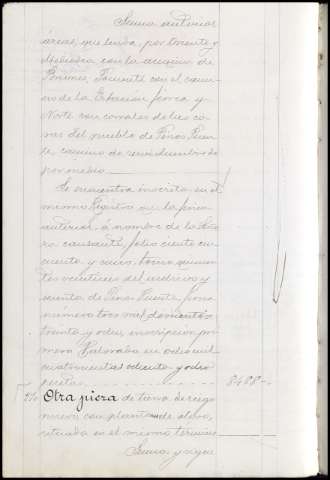 Suma anterior
áreas, que linda, por Oriente y
Mediodía con la acequia de
Poniente con el cami-
no de la Estación férrea y
Norte con corrales de las ca-
sas del pueblo de Pinos Puen-
te, camino de servidumbre de
por medio
Se encuentra inscrita en el
mismo Registro que la finca
anterior á nombre de la Seño-
ra causante, folio ciento cin-
cuenta y cinco, tomo quinien-
tos veintiseis del archivo y
de Pinos Puente, finca
número tres mil doscientos
treinta y ocho, inscripción pri-
mera. Valorada en ocho mil
cuatrocientas ochenta y ocho
pesetas 8488 -
Otra pieza de tierra de riego
nuevo con plantonada de olivos,
situada en el mismo término
Suma y sigue